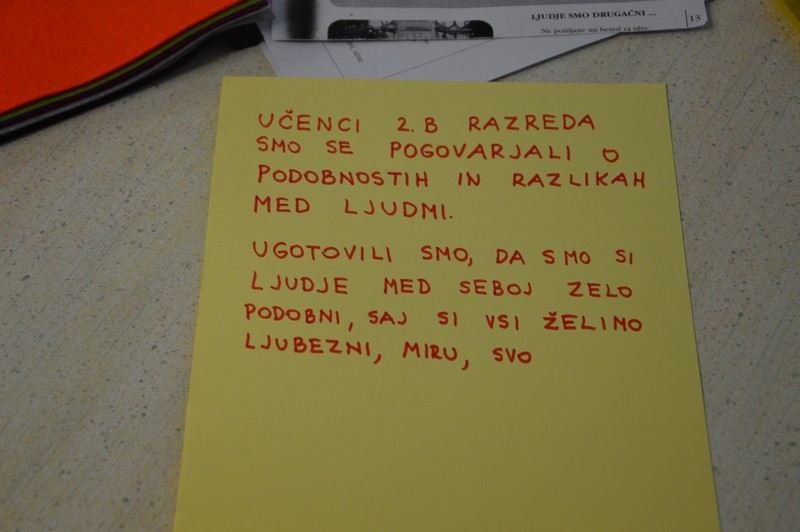 LJUDJE SMO DRUGAČNI ...
13
Ne pošiljajte mi besed za uho.
UČENCI 2. B RAZREDA
SMO SE POGOVARJALI O
PODOBNOSTIH IN RAZLIKAH
MED LJUDMI.
UGOTOVILI SMO, DA SMO SI
LJUDJE MED SEBOJ ZELO
PODOBNI, SAJ SI VSI ŽELIMO
LJUBEZNI, MIRU, SVO